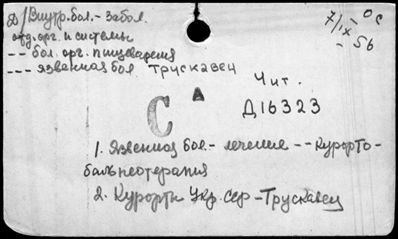 Д/Внутр. бол. - забол.
отд. орг. и системы
-- бол. орг. пищеварения
--- язвенная бол. Трускавец
7/IX - 56
Чит.
Д16323
С
1. Язвенная бол. - лечение -- Курорто-
бальнеотерапия
2. Курорты Укр. ССР - Трускавец